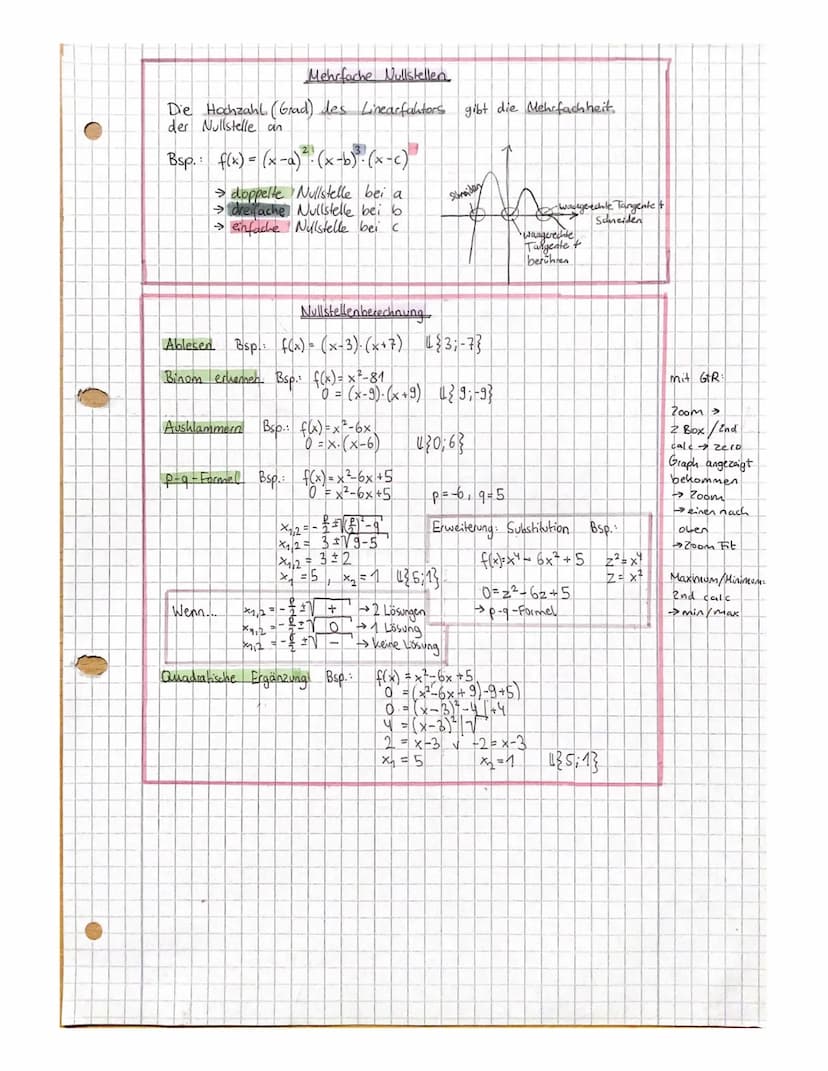 Mehrfache Nullstellen
Die Hochzahl (Grad) des Linearfaktors gibt die Mehrfachheit
der Nullstelle an
Bsp.: f(x) = (x-a)²·(x-b)³·(x-c)
→ doppelte Nullstelle bei a
→ dreifache Nullstelle bei b
→ einfache Nullstelle bei c
schneiden
waagerechte Tangente +
schneiden
waagerechte
Tangente +
berühren
Nullstellenberechnung
Ablesen Bsp.: f(x) = (x-3)·(x+7) 𝕃{3;-7}
Binom erkennen Bsp.: f(x) = x²-81
0 = (x-9)·(x+9) 𝕃{9;-9}
Ausklammern Bsp.: f(x) = x²-6x
0 = x·(x-6) 𝕃{0;6}
p-q-Formel Bsp.: f(x) = x²-6x+5
0 = x²-6x+5 p=-6, q=5
x₁,₂ = -p/2 ± √((p/2)²-q)
x₁,₂ = 3 ± √(9-5)
x₁,₂ = 3 ± 2
x₁ = 5, x₂ = 1 𝕃{5;1}
Erweiterung: Substitution Bsp.:
f(x)=x⁴-6x²+5 z²=x⁴
0=z²-6z+5 z=x²
→ p-q-Formel
Wenn... x₁,₂ = -p/2 ± √+ → 2 Lösungen
x₁,₂ = -p/2 ± √0 → 1 Lösung
x₁,₂ = -p/2 ± √- → keine Lösung
Quadratische Ergänzung Bsp.: f(x) = x²-6x+5
0 = (x²-6x+9)-9+5)
0 = (x-3)²-4 |+4
4 = (x-3)² |√
2 = x-3 ∨ -2 = x-3
x₁ = 5 x₂ = 1 𝕃{5;1}
mit GTR:
Zoom →
2 Box/2nd
calc → zero
Graph angezeigt
bekommen
→ Zoom
→ einen nach
oben
→ Zoom Fit
Maximum/Minimum:
2nd calc
→ min/max